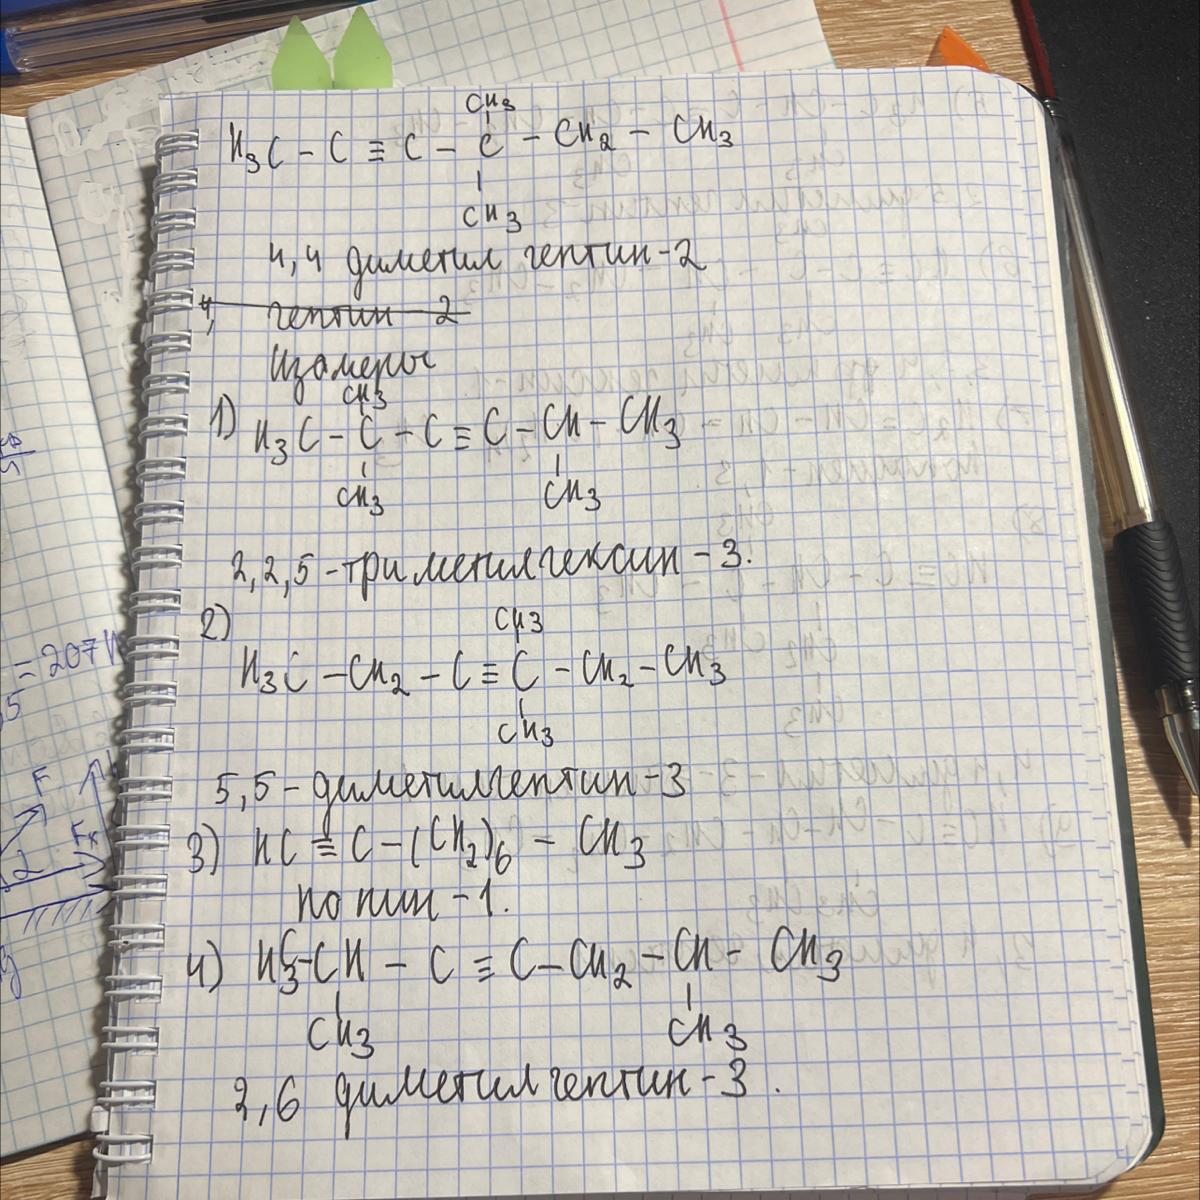 CH3
H3C - C ≡ C - C - CH2 - CH3
CH3
4,4 диметил гептин-2
4, гептин 2
Изомеры
CH3
1) H3C - C - C ≡ C - CH - CH3
CH3 CH3
2,2,5-триметилгексин-3.
2)
CH3
H3C - CH2 - C ≡ C - CH2 - CH3
CH3
5,5-диметилгептин-3
3) HC ≡ C - (CH2)6 - CH3
нонин-1.
4) H3C-CH - C ≡ C - CH2 - CH - CH3
CH3 CH3
2,6 диметилгептин-3.
= 207
5
F
2